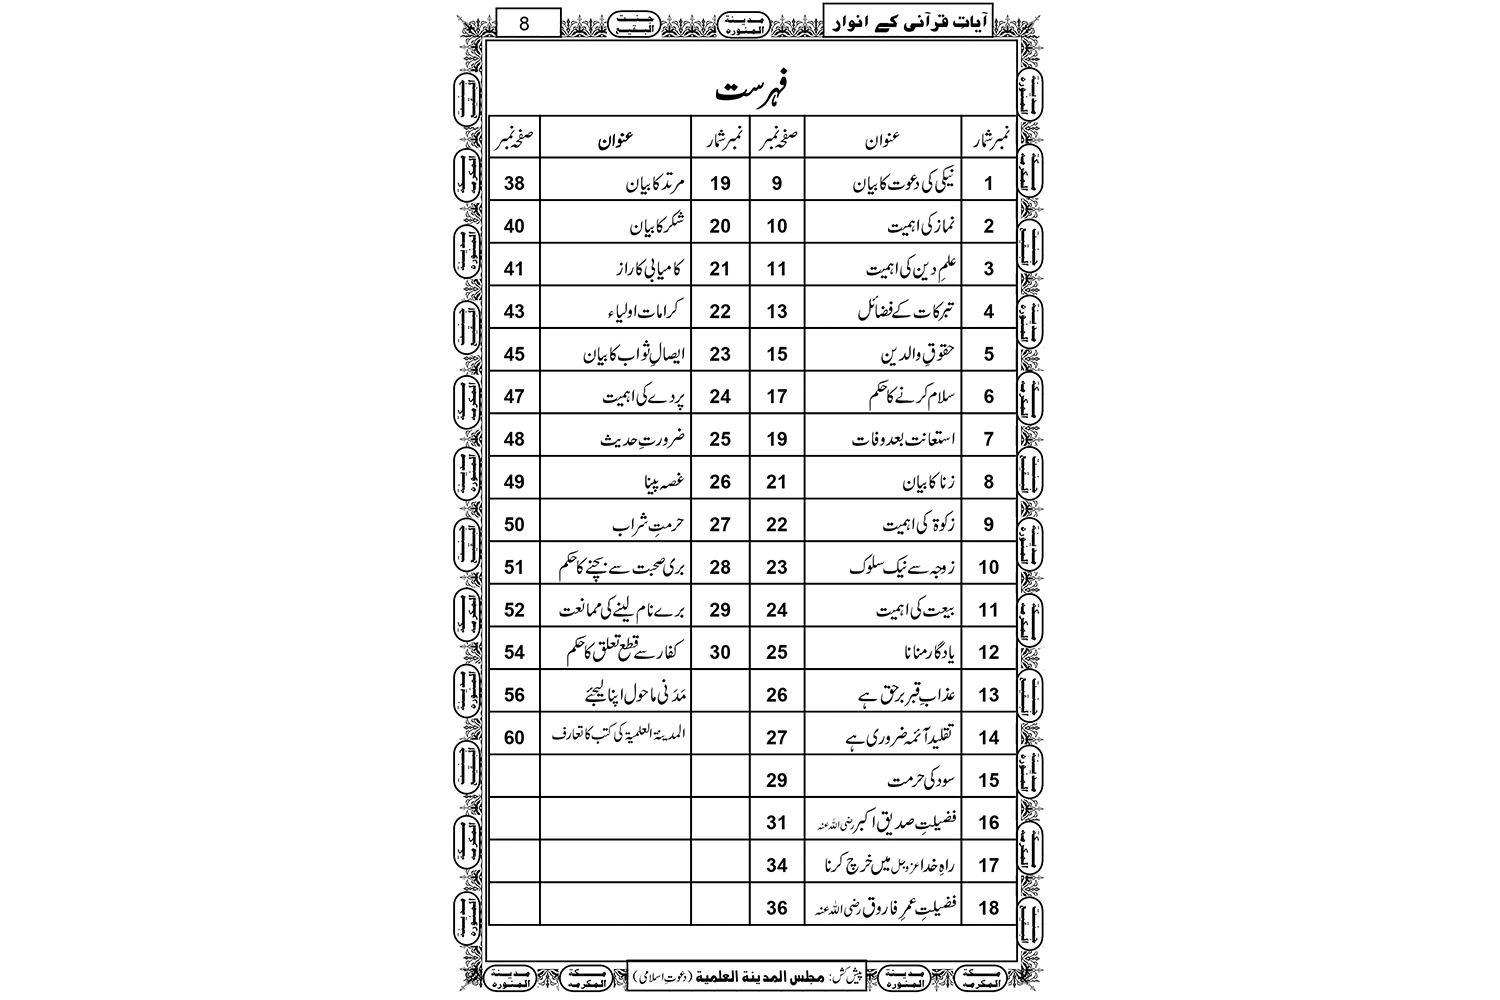 آیاتِ قرآنی کے انوار
8
فہرست
نمبر شمار عنوان صفحہ نمبر نمبر شمار عنوان صفحہ نمبر
1 نیکی کی دعوت کا بیان 9 19 مرتد کا بیان 38
2 نماز کی اہمیت 10 20 شکر کا بیان 40
3 علمِ دین کی اہمیت 11 21 کامیابی کا راز 41
4 تبرکات کے فضائل 13 22 کرامات اولیاء 43
5 حقوقِ والدین 15 23 ایصالِ ثواب کا بیان 45
6 سلام کرنے کا حکم 17 24 پردے کی اہمیت 47
7 استعانت بعد وفات 19 25 ضرورتِ حدیث 48
8 زنا کا بیان 21 26 غصہ پینا 49
9 زکوۃ کی اہمیت 22 27 حرمتِ شراب 50
10 زوجہ سے نیک سلوک 23 28 بری صحبت سے بچنے کا حکم 51
11 بیعت کی اہمیت 24 29 برے نام لینے کی ممانعت 52
12 یادگار منانا 25 30 کفار سے قطع تعلق کا حکم 54
13 عذابِ قبر برحق ہے 26 مَدَنی ماحول اپنا لیجئے 56
14 تقلید آئمہ ضروری ہے 27 المدینۃ العلمیۃ کی کتب کا تعارف 60
15 سود کی حرمت 29
16 فضیلتِ صدیق اکبر رضی اللہ عنہ 31
17 راہِ خدا عزوجل میں خرچ کرنا 34
18 فضیلتِ عمرِ فاروق رضی اللہ عنہ 36
پیش کش: مجلس المدینۃ العلمیۃ (دعوتِ اسلامی)
مدينة المنوره
جنت البقيع
مكة المكرمه